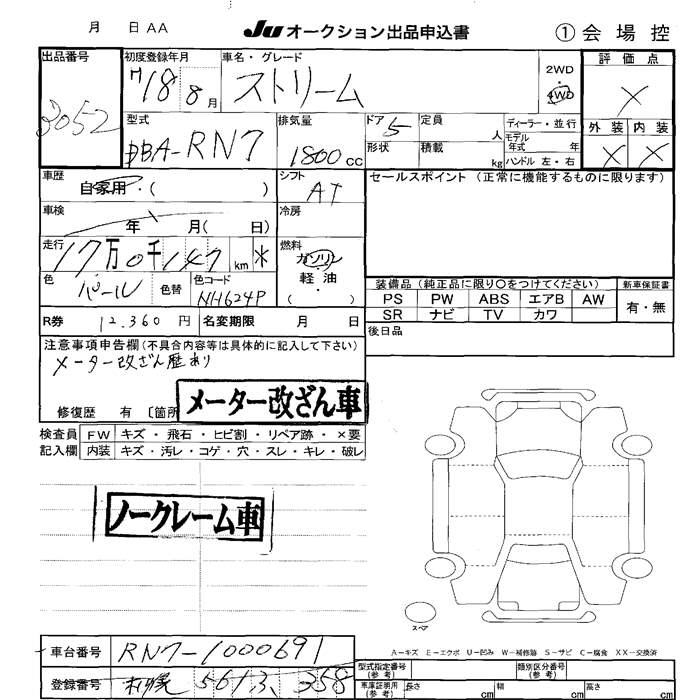 月 日 AA JU オークション出品申込書 ① 会場控
出品番号 初度登録年月 車名・グレード 2WD 評価点
3052 H18 8月 ストリーム 4WD ×
型式 排気量 ドア 5 定員 人 ディーラー・並行 外装 内装
DBA-RN7 1800cc 形状 積載 kg モデル年式 年 × ×
ハンドル 左・右
車歴 シフト セールスポイント (正常に機能するものに限ります)
自家用・( ) AT
車検 年 月( 日) 冷房
走行 17万0千147km * 燃料 ガソリン・軽油 ( )
色 パール 色替 色コード NH624P
装備品 (純正品に限り○をつけてください) 新車保証書
PS PW ABS エアB AW 有・無
SR ナビ TV カワ
R券 12,360円 名変期限 月 日 後日品
注意事項申告欄 (不具合内容等は具体的に記入して下さい)
メーター改ざん歴あり
メーター改ざん車
修復歴 有 〔箇所
検査員 FW キズ・飛石・ヒビ割・リペア跡・×要
記入欄 内装 キズ・汚レ・コゲ・穴・スレ・キレ・破レ
ノークレーム車
スペア
A-キズ E-エクボ U-凹み W-補修跡 S-サビ C-腐食 XX-交換済
車台番号 RN7-1000691
型式指定番号(参考) 類別区分番号(参考)
登録番号 561 358
車庫証明用(参考) 長さ cm 幅 cm 高さ cm